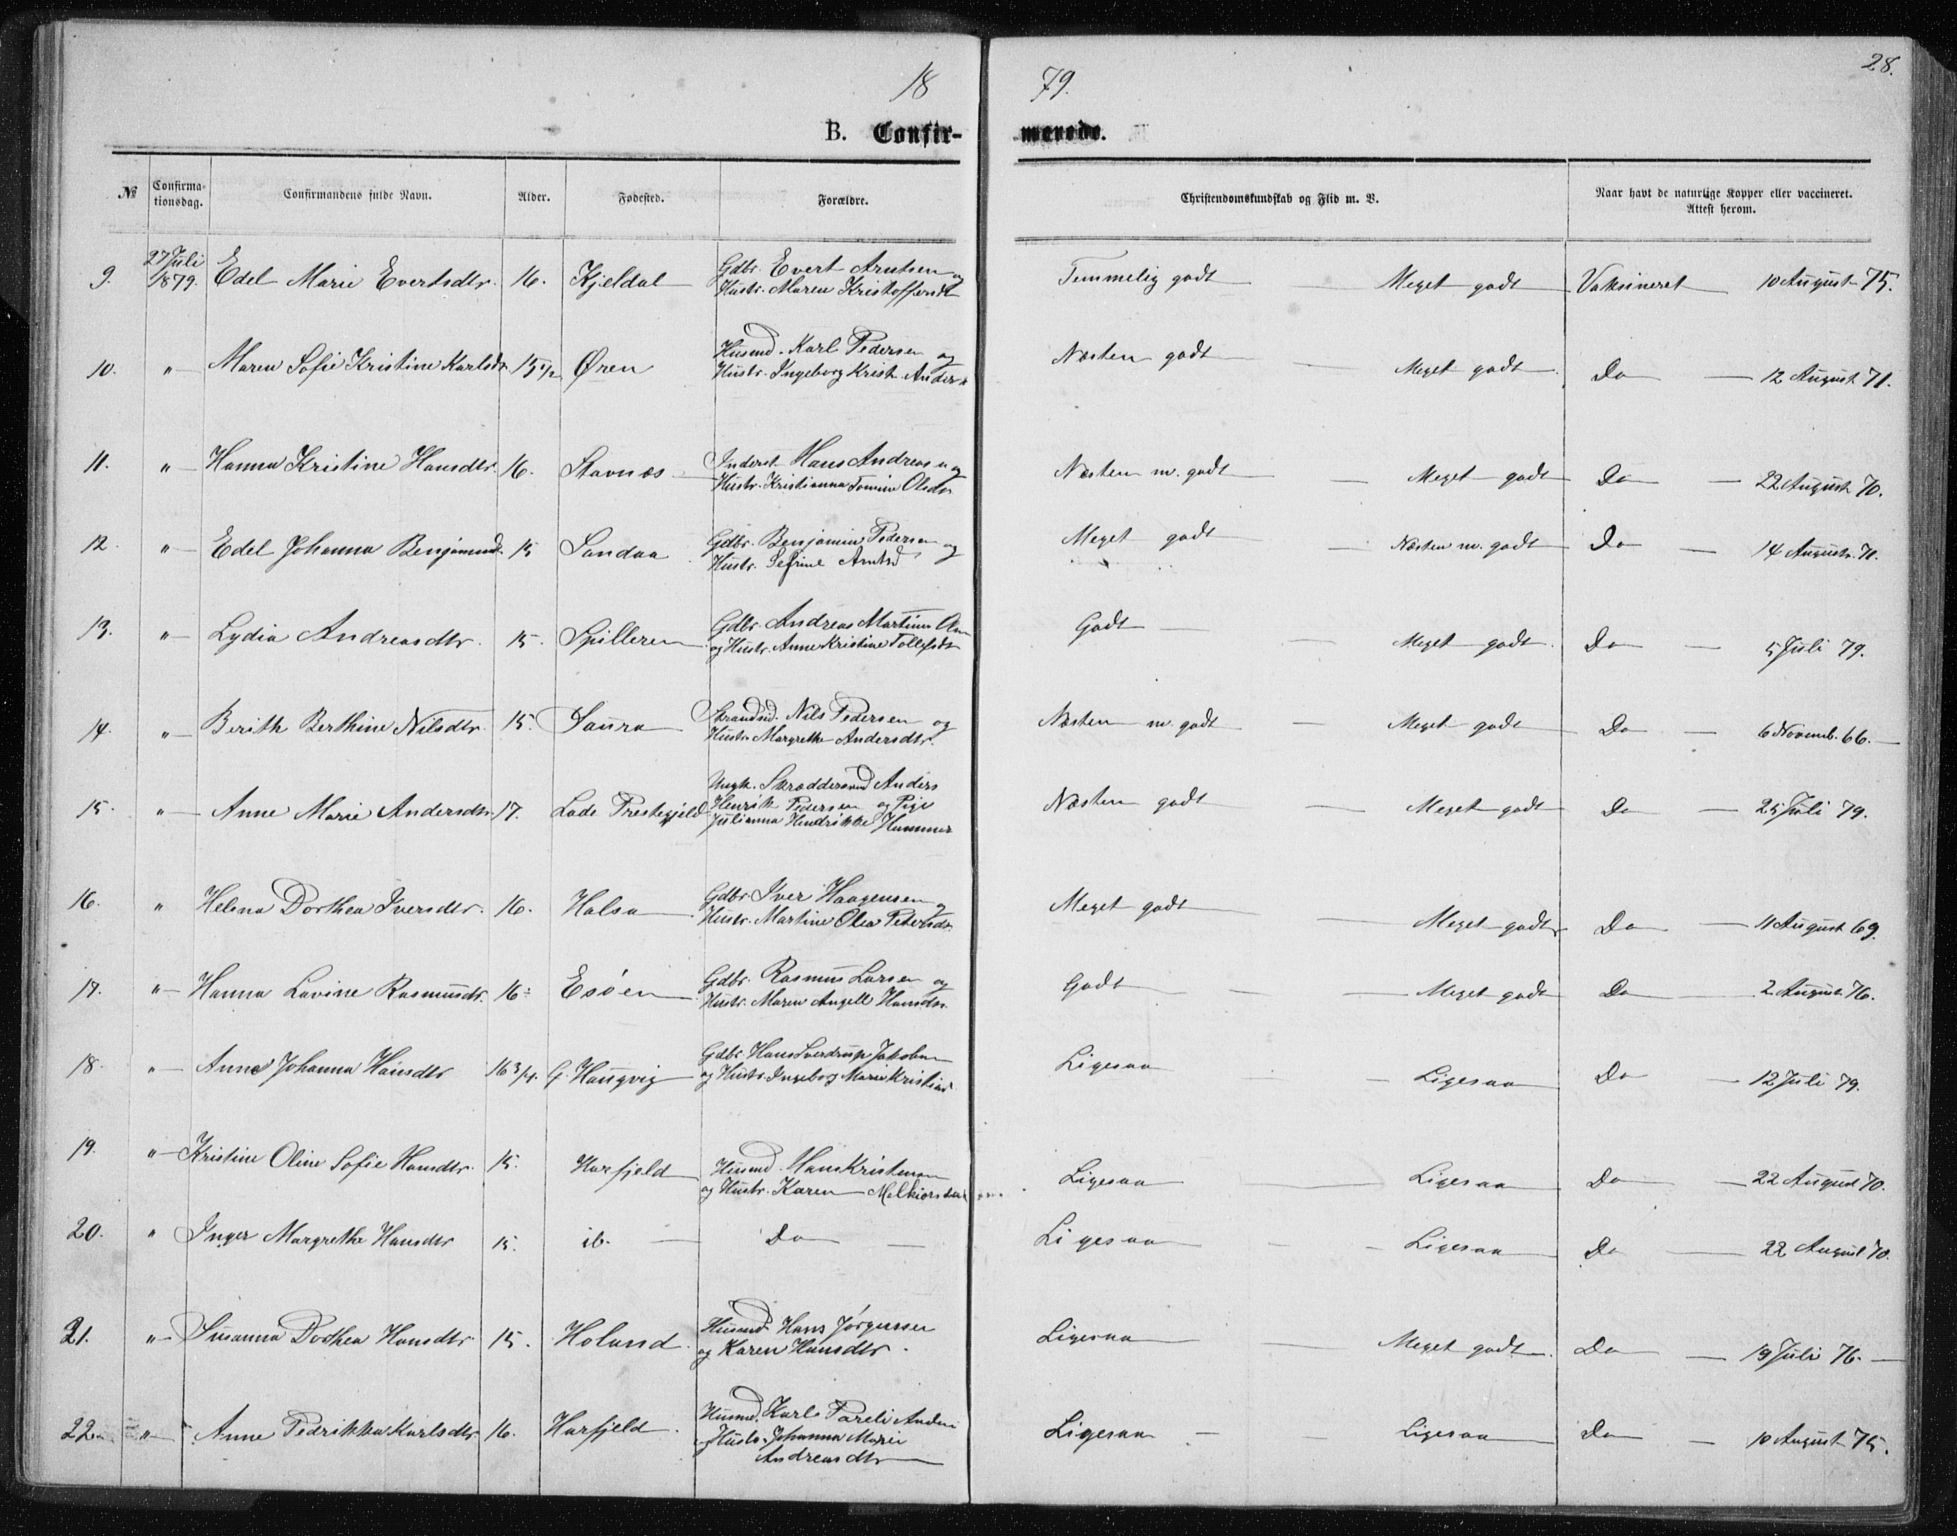 18 79.
28.
B. Confir- merede.
№ Confirma- tionsdag. Confirmandens fulde Navn. Alder. Fødested. Forældre. Christendomskundskab og Flid m. V. Naar havt de naturlige Kopper eller vaccineret. Attest herom.
9. 27 Juli 1879. Edel Marie Evertsdtr. 16. Kjeldal Gdbr. Evert Arntsen og Hustr. Maren Kristoffersdt Temmelig godt Meget godt Vaksineret 10 August 75.
10. " Maren Sofie Kristine Karlsdr 15 1/2 Øren Husmd. Karl Pedersen og Hustr. Ingeborg Krist. Anders Næsten godt Meget godt Do 12 August 71.
11. " Hanna Kristine Hansdtr. 16. Stavnæs Inderst Hans Andreas og Hustr. Kristianna Tomine Olsdtr Næsten m. godt Meget godt Do 22 August 70.
12. " Edel Johanna Benjamind. 15 Sandaa Gdbr. Benjamin Pedersen og Hustr. Sefrine Arntsd Meget godt Næsten m. godt Do 14 August. 70.
13. " Lydia Andreasdtr. 15. Spilleren Gdbr. Andreas Martinus og Hustr. Anne Kristine Tollefsdtr Godt Meget godt. Do 5 Juli 79.
14. " Berith Berthine Nilsdtr. 15. Saura Strandsd. Nils Pedersen og Hustr Margrethe Andersdtr. Næsten m. godt Meget godt Do 6 Novemb. 66.
15. " Anne Marie Andersdtr. 17. Lade Prestegjeld Ungk. Skræddersvd Anders Henrik Pedersen og Pige Julianna Hendrikke Hammer Næsten godt Meget godt Do 25 Juli 79.
16. " Helena Dorthea Iversdtr. 16. Halsa Gdbr Iver Haagensen og Hustr. Martine Olea Petersdr. Meget godt Meget godt Do 11 August 69.
17. " Hanna Lavine Rasmusdtr. 16 Esøen Gdbr. Rasmus Larsen og Hustr. Maren Angell Hansdtr. Godt Meget godt Do 2 August 76.
18. " Anne Johanna Hansdtr 16 3/4. G. Haugvig Gdbr. Hans Sverdrup Jakobsen og Hustr. Ingeborg Marie Kristians Ligesaa Ligesaa Do 12 Juli 79.
19. " Kristine Oline Sofie Hansdtr. 15. Harfjeld Husmd. Hans Kristensen og Hustr. Karen Melkiorsdatter Ligesaa Ligesaa Do 22 August 70.
20. " Inger Margrethe Hansdtr 15. ib. Do Ligesaa Ligesaa Do 22 August 70.
21. " Susanna Dorthea Hansdtr 15. Holand Husmd Hans Jørgensen og Karen Hansdtr. Ligesaa Meget godt. Do 19 Juli 76.
22 " Anne Pedrikka Karlsdtr 16. Harfjeld Husmd. Karl Pareli Hustr. Johanna Marie Andreasdtr Ligesaa Ligesaa Do 10 August 75.